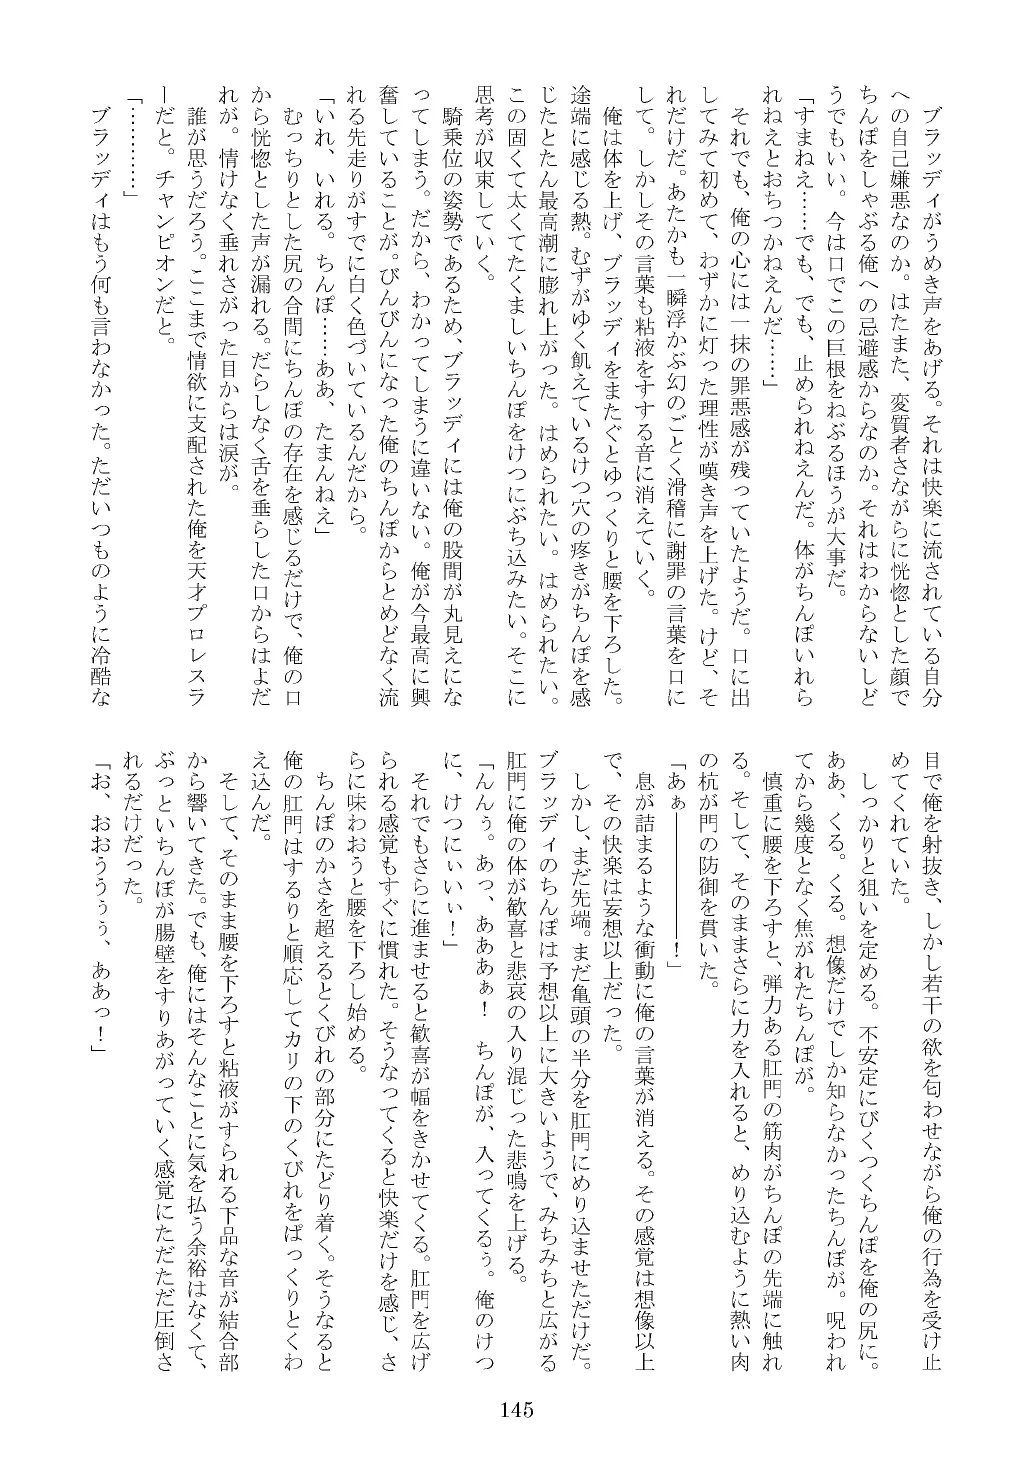 ブラッディがうめき声をあげる。それは快楽に流されている自分
への自己嫌悪なのか。はたまた、変質者さながらに恍惚とした顔で
ちんぽをしゃぶる俺への忌避感からなのか。それはわからないしど
うでもいい。今は口でこの巨根をねぶるほうが大事だ。
「すまねえ……でも、でも、止められねえんだ。体がちんぽいれら
れねえとおちつかねえんだ……」
それでも、俺の心には一抹の罪悪感が残っていたようだ。口に出
してみて初めて、わずかに灯った理性が嘆き声を上げた。けど、そ
れだけだ。あたかも一瞬浮かぶ幻のごとく滑稽に謝罪の言葉を口に
して。しかしその言葉も粘液をすする音に消えていく。
俺は体を上げ、ブラッディをまたぐとゆっくりと腰を下ろした。
途端に感じる熱。むずがゆく飢えているけつ穴の疼きがちんぽを感
じたとたん最高潮に膨れ上がった。はめられたい。はめられたい。
この固くて太くてたくましいちんぽをけつにぶち込みたい。そこに
思考が収束していく。
騎乗位の姿勢であるため、ブラッディには俺の股間が丸見えにな
ってしまう。だから、わかってしまうに違いない。俺が今最高に興
奮していることが。びんびんになった俺のちんぽからとめどなく流
れる先走りがすでに白く色づいているんだから。
「いれ、いれる。ちんぽ……ああ、たまんねえ」
むっちりとした尻の合間にちんぽの存在を感じるだけで、俺の口
から恍惚とした声が漏れる。だらしなく舌を垂らした口からはよだ
れが。情けなく垂れさがった目からは涙が。
誰が思うだろう。ここまで情欲に支配された俺を天才プロレスラ
ーだと。チャンピオンだと。
「…………」
ブラッディはもう何も言わなかった。ただいつものように冷酷な
目で俺を射抜き、しかし若干の欲を匂わせながら俺の行為を受け止
めてくれていた。
しっかりと狙いを定める。不安定にびくつくちんぽを俺の尻に。
ああ、くる。くる。想像だけでしか知らなかったちんぽが。呪われ
てから幾度となく焦がれたちんぽが。
慎重に腰を下ろすと、弾力ある肛門の筋肉がちんぽの先端に触れ
る。そして、そのままさらに力を入れると、めり込むように熱い肉
の杭が門の防御を貫いた。
「あぁ――――――！」
息が詰まるような衝動に俺の言葉が消える。その感覚は想像以上
で、その快楽は妄想以上だった。
しかし、まだ先端。まだ亀頭の半分を肛門にめり込ませただけだ。
ブラッディのちんぽは予想以上に大きいようで、みちみちと広がる
肛門に俺の体が歓喜と悲哀の入り混じった悲鳴を上げる。
「んんぅ。あっ、あああぁ！　ちんぽが、入ってくるぅ。俺のけつ
に、けつにぃいぃ！」
それでもさらに進ませると歓喜が幅をきかせてくる。肛門を広げ
られる感覚もすぐに慣れた。そうなってくると快楽だけを感じ、さ
らに味わおうと腰を下ろし始める。
ちんぽのかさを超えるとくびれの部分にたどり着く。そうなると
俺の肛門はするりと順応してカリの下のくびれをぱっくりとくわ
え込んだ。
そして、そのまま腰を下ろすと粘液がすられる下品な音が結合部
から響いてきた。でも、俺にはそんなことに気を払う余裕はなくて、
ぶっといちんぽが腸壁をすりあがっていく感覚にただただ圧倒さ
れるだけだった。
「お、おおうぅぅ、ああっ！」
145